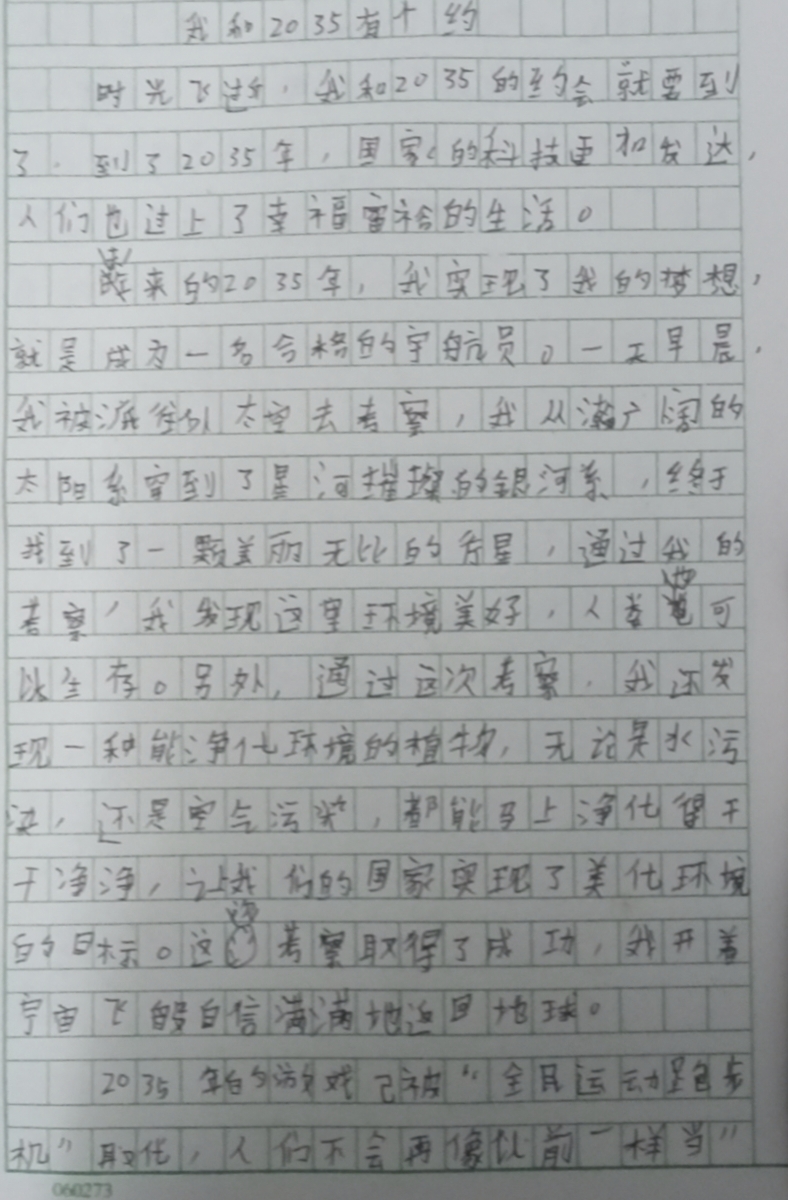 我和2035有个约
时光飞过,我和2035的约会就要到
了.到了2035年,国家的科技更加发达,
人们也过上了幸福富裕的生活。
未来的2035年,我实现了我的梦想,
就是成为一名合格的宇航员。一天早晨,
我被派往太空去考察,我从广阔的
太阳系穿到了星河璀璨的银河系,终于
找到了一颗美丽无比的行星,通过我的
考察,我发现这里环境美好,人类也可
以生存。另外,通过这次考察.我还发
现一种能净化环境的植物,无论是水污
染,还是空气污染,都能马上净化得干
干净净,让我们的国家实现了美化环境
的目标。这次考察取得了成功,我开着
宇宙飞船自信满满地返回地球。
2035年的游戏已被“全民运动跑步
机”取代,人们不会再像以前一样当“
060273